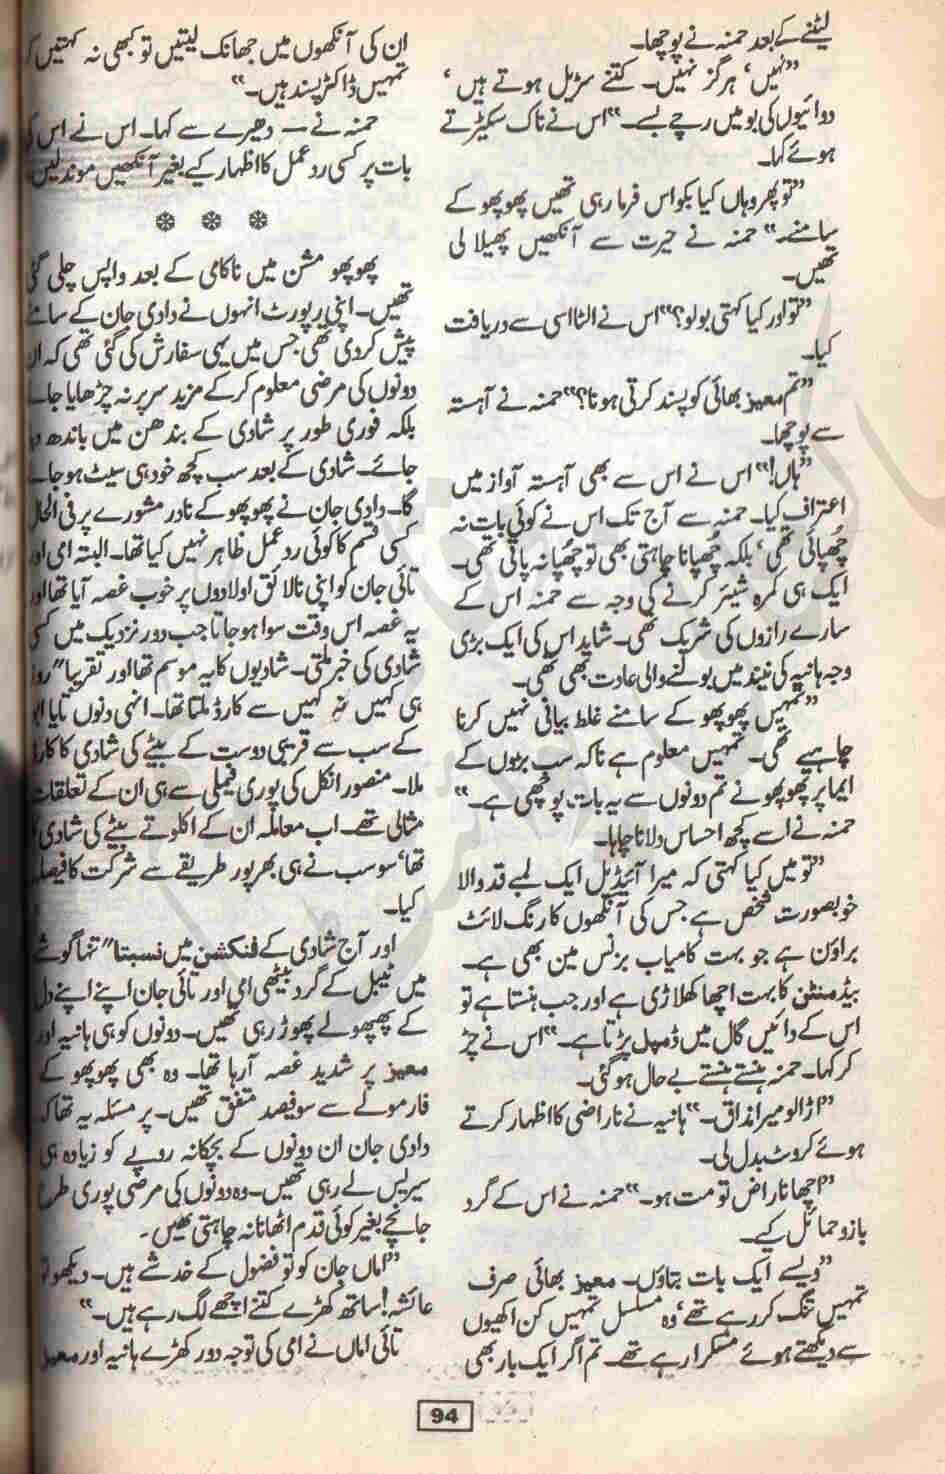 لیٹنے کے بعد حمنہ نے پوچھا۔
”نہیں‘ ہرگز نہیں۔ کتنے سڑیل ہوتے ہیں‘
دوائیوں کی بو میں رچے بسے۔“ اس نے ناک سکیڑتے
ہوئے کہا۔
”تو پھر وہاں کیا بکواس فرما رہی تھیں پھوپھو کے
سامنے۔“ حمنہ نے حیرت سے آنکھیں پھیلا لی
تھیں۔
”تو اور کیا کہتی بولو؟“ اس نے الٹا اسی سے دریافت
کیا۔
”تم معیز بھائی کو پسند کرتی ہو نا؟“ حمنہ نے آہستہ
سے پوچھا۔
”ہاں!“ اس نے اس سے بھی آہستہ آواز میں
اعتراف کیا۔ حمنہ سے آج تک اس نے کوئی بات نہ
چھپائی تھی‘ بلکہ چھپانا چاہتی بھی تو چھپا نہ پاتی تھی۔
ایک ہی کمرہ شیئر کرنے کی وجہ سے حمنہ اس کے
سارے رازوں کی شریک تھی۔ شاید اس کی ایک بڑی
وجہ ہانیہ کی نیند میں بولنے والی عادت بھی تھی۔
”تمہیں پھوپھو کے سامنے غلط بیانی نہیں کرنا
چاہیے تھی۔ تمہیں معلوم ہے ناکہ سب بڑوں کے
ایما پر پھوپھو نے تم دونوں سے یہ بات پوچھی ہے۔“
حمنہ نے اسے کچھ احساس دلانا چاہا۔
”تو میں کیا کہتی کہ میرا آئیڈیل ایک لمبے قد والا
خوبصورت شخص ہے جس کی آنکھوں کا رنگ لائٹ
براؤن ہے جو بہت کامیاب بزنس مین بھی ہے۔
بیڈمنٹن کا بہت اچھا کھلاڑی ہے اور جب ہنستا ہے تو
اس کے دائیں گال میں ڈمپل پڑتا ہے۔“ اس نے چڑ
کر کہا۔ حمنہ ہنستے ہنستے بے حال ہو گئی۔
”اڑا لو میرا مذاق۔“ ہانیہ نے ناراضی کا اظہار کرتے
ہوئے کروٹ بدل لی۔
”اچھا ناراض تو مت ہو۔“ حمنہ نے اس کے گرد
بازو حمائل کیے۔
”ویسے ایک بات بتاؤں۔ معیز بھائی صرف
تمہیں تنگ کر رہے تھے‘ وہ مسلسل تمہیں کن اکھیوں
سے دیکھتے ہوئے مسکرا رہے تھے۔ تم اگر ایک بار بھی
ان کی آنکھوں میں جھانک لیتیں تو کبھی نہ کہتیں
تمہیں ڈاکٹر پسند ہیں۔“
حمنہ نے — دھیرے سے کہا۔ اس نے اس
بات پر کسی رد عمل کا اظہار کے بغیر آنکھیں موند لیں
❋ ❋ ❋
پھوپھو مشن میں ناکامی کے بعد واپس چلی گئی
تھیں۔ اپنی رپورٹ انہوں نے دادی جان کے سامنے
پیش کر دی تھی جس میں یہی سفارش کی گئی تھی کہ ان
دونوں کی مرضی معلوم کرکے مزید سر پر نہ چڑھایا جائے
بلکہ فوری طور پر شادی کے بندھن میں باندھ
جائے۔ شادی کے بعد سب کچھ خود ہی سیٹ ہو جائے
گا۔ دادی جان نے پھوپھو کے نادر مشورے پر فی الحال
کسی قسم کا کوئی رد عمل ظاہر نہیں کیا تھا۔ البتہ امی اور
تائی جان کو اپنی نالائق اولادوں پر خوب غصہ آیا تھا اور
یہ غصہ اس وقت سوا ہو جاتا جب دور نزدیک میں کسی
شادی کی خبر ملتی۔ شادیوں کا یہ موسم تھا اور تقریبا" روز
ہی کہیں نہ کہیں سے کارڈ ملتا تھا۔ انہی دنوں تایا
کے سب سے قریبی دوست کے بیٹے کی شادی کا کارڈ
ملا۔ منصور انکل کی پوری فیملی سے ہی ان کے تعلقات
مثالی تھے۔ اب معاملہ ان کے اکلوتے بیٹے کی شادی
تھا‘ سو سب نے ہی بھرپور طریقے سے شرکت کا فیصلہ
کیا۔
اور آج شادی کے فنکشن میں نسبتا" تنہا گوشے
میں ٹیبل کے گرد بیٹھی امی اور تائی جان اپنے اپنے دل
کے پھپھولے پھوڑ رہی تھیں۔ دونوں کو ہی ہانیہ اور
معیز پر شدید غصہ آ رہا تھا۔ وہ بھی پھوپھو کے
فارمولے سے سو فیصد متفق تھیں۔ پر مسئلہ یہ تھا کہ
دادی جان ان دونوں کے بچکانہ رویے کو زیادہ ہی
سیریس لے رہی تھیں۔ وہ دونوں کی مرضی پوری طرح
جانچے بغیر کوئی قدم اٹھانا نہ چاہتی تھیں۔
”اماں جان کو تو فضول کے خدشے ہیں۔ دیکھو تو
عائشہ! ساتھ کھڑے کتنے اچھے لگ رہے ہیں۔“
تائی اماں نے امی کی توجہ دور کھڑے ہانیہ اور معیز
94